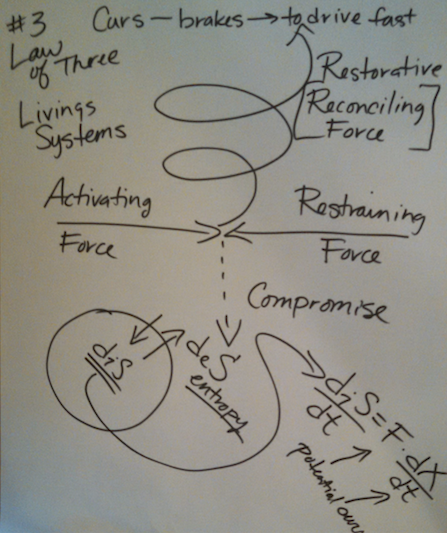 #3 Cars – brakes → to drive fast
Law
of Three
Livings
Systems
Restorative
[Reconciling
Force]
Activating
Force
Restraining
Force
Compromise
diS
deS
entropy
diS/dt = F · dX/dt
potential